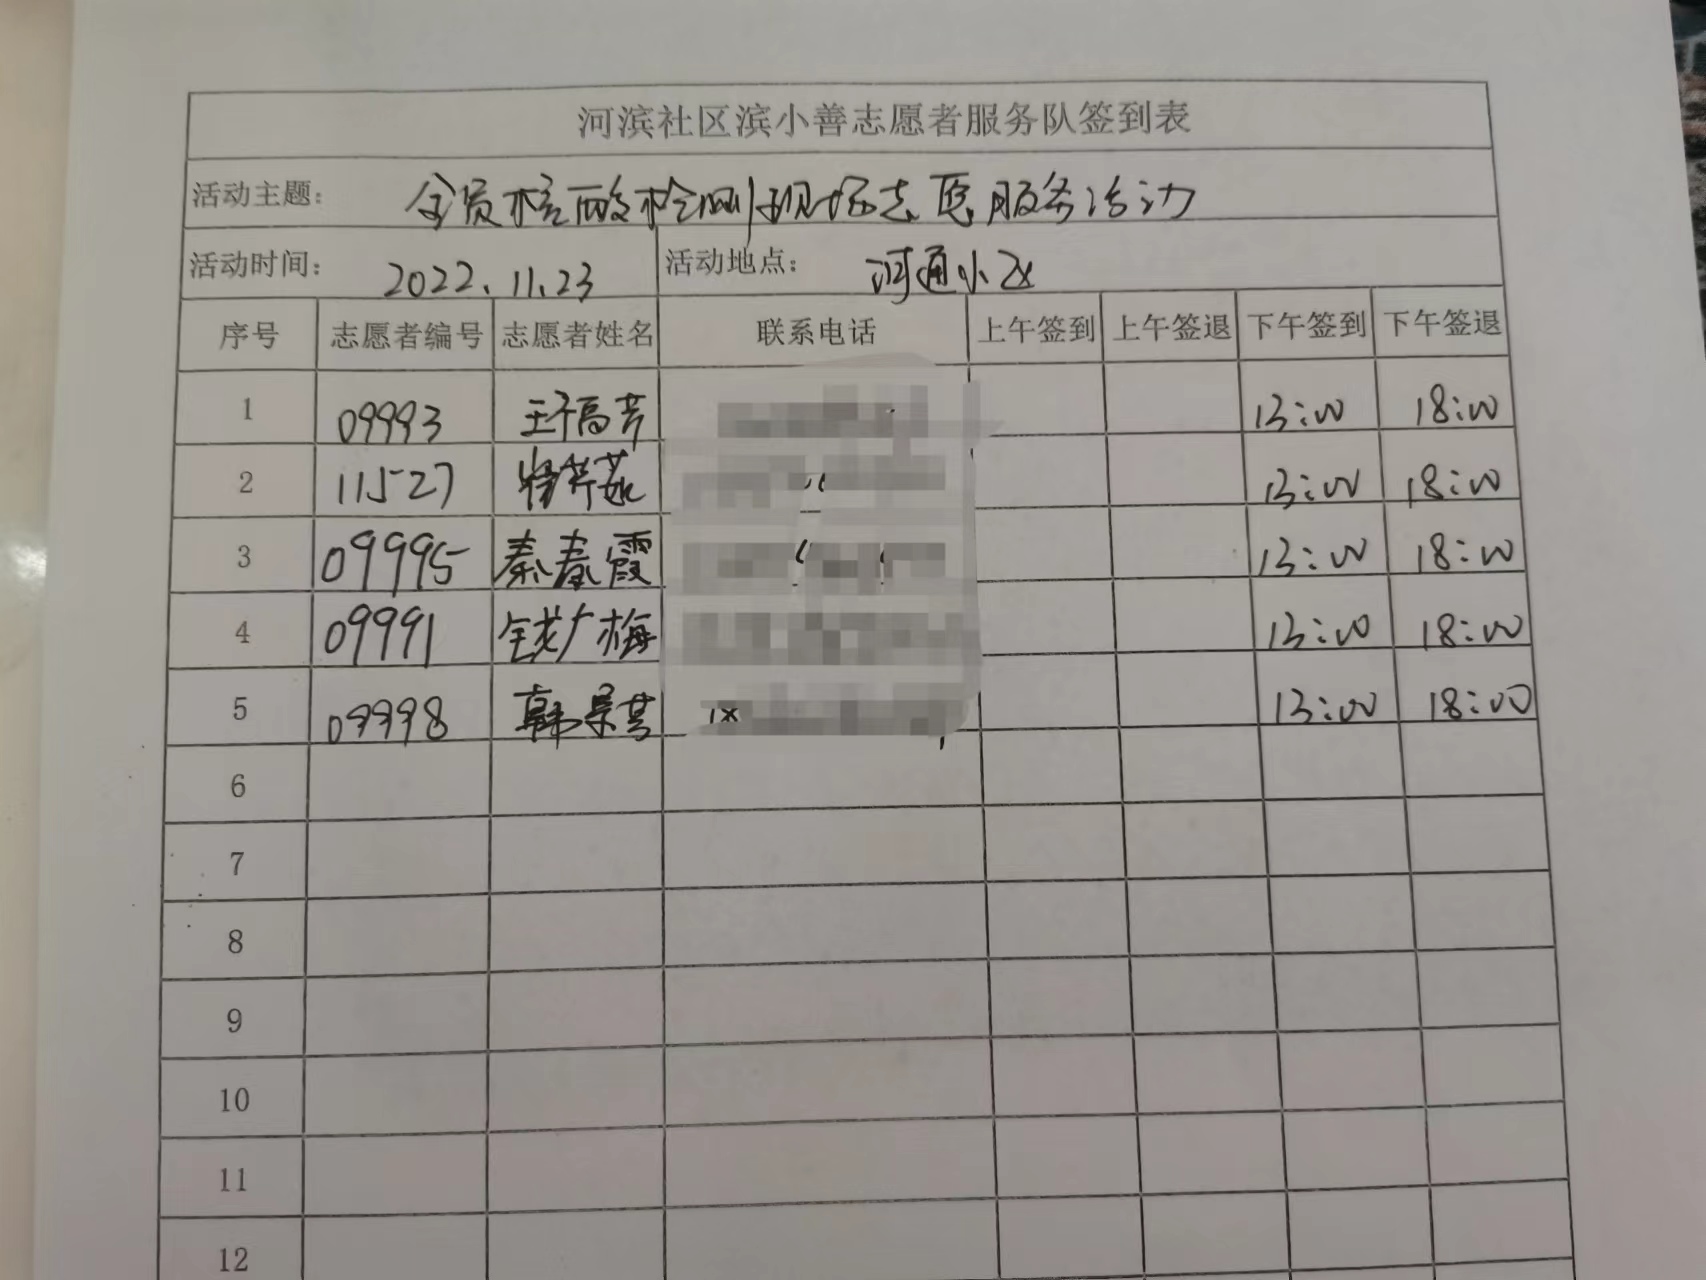 河滨社区滨小善志愿者服务队签到表
活动主题： 全员核酸检测现场志愿服务活动
活动时间： 2022.11.23 活动地点： 河通小区
序号 志愿者编号 志愿者姓名 联系电话 上午签到 上午签退 下午签到 下午签退
1 09993 13:00 18:00
2 11527 13:00 18:00
3 09995 秦春霞 13:00 18:00
4 09991 钱广梅 13:00 18:00
5 09998 韩景芸 13:00 18:00
6
7
8
9
10
11
12